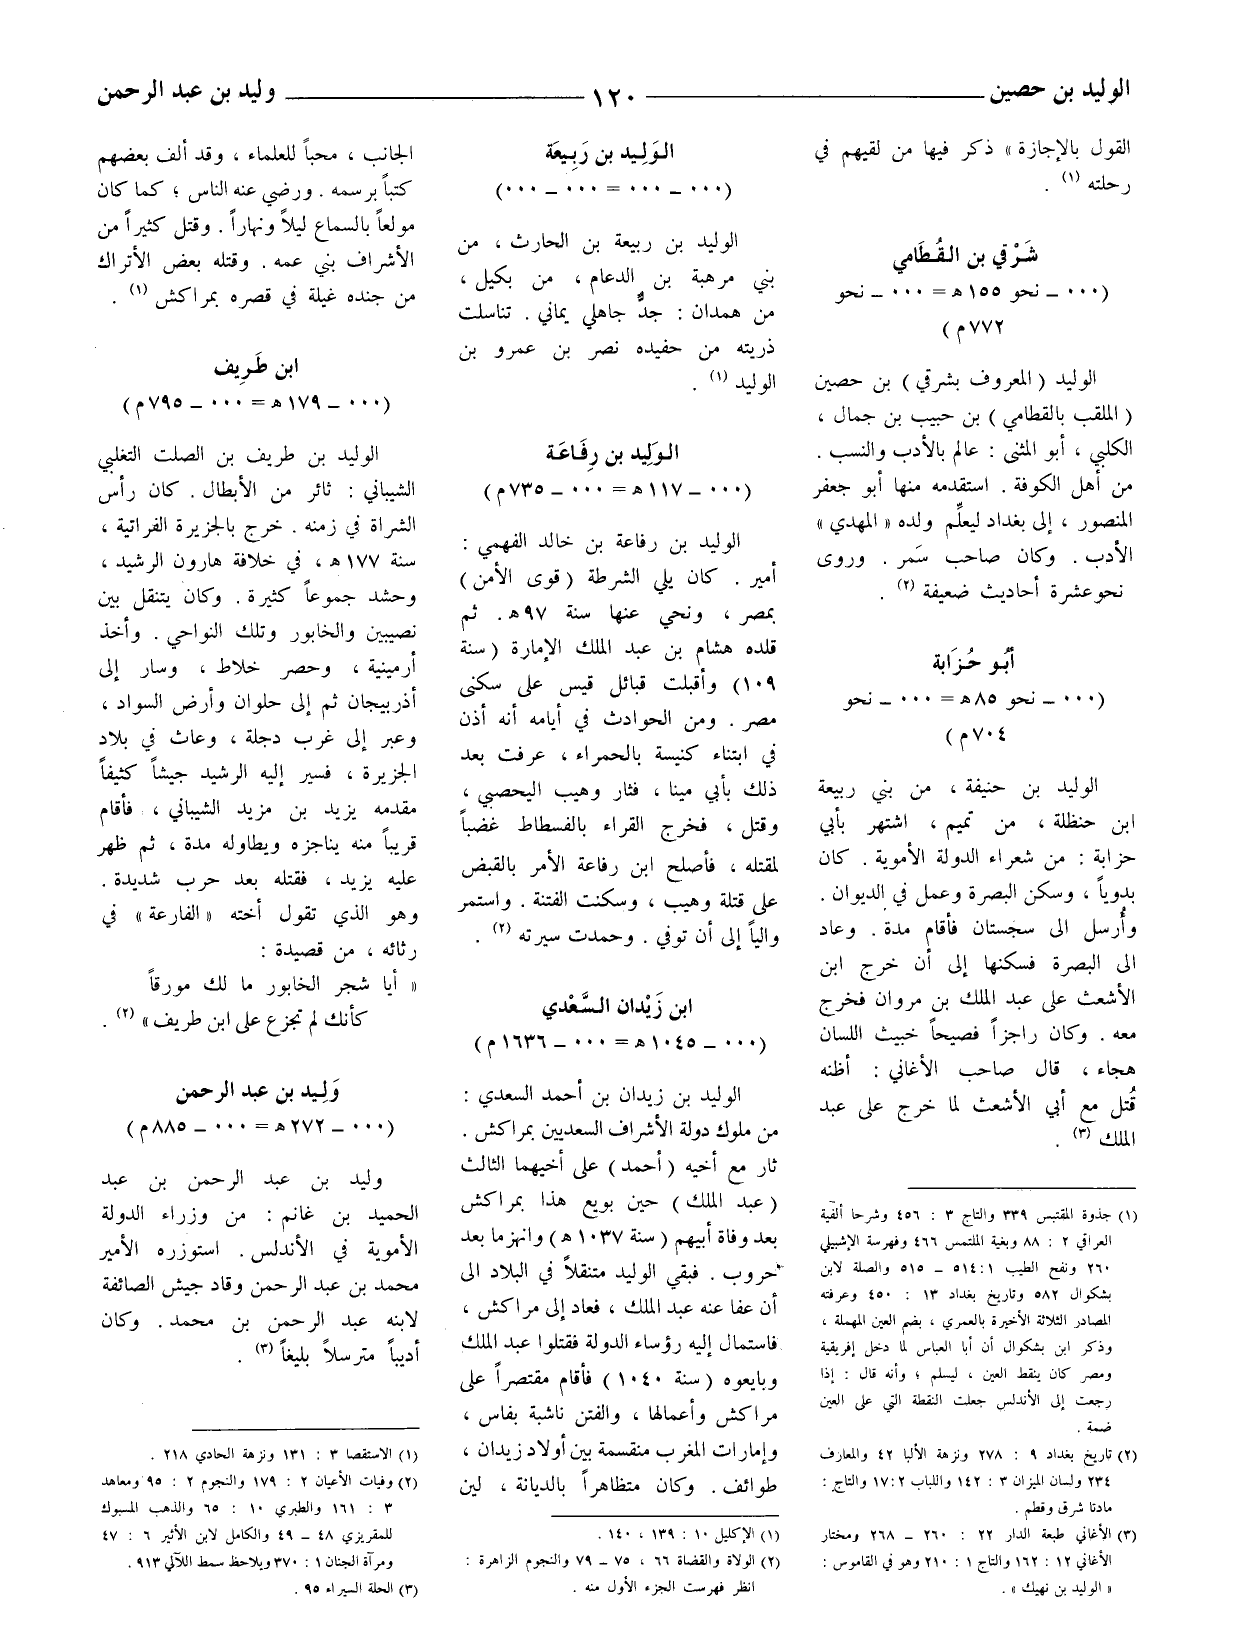 الوليد بن حصين ـــ ١٢٠ ـــ وليد بن عبد الرحمن
القول بالإجازة » ذكر فيها من لقيهم في
رحلته (١) .
شَرْقي بن القُطَامي
(٠٠٠ – نحو ١٥٥ هـ = ٠٠٠ – نحو
٧٧٢ م)
الوليد (المعروف بشرقي) بن حصين
(الملقب بالقطامي) بن حبيب بن جمال ،
الكلبي ، أبو المثنى : عالم بالأدب والنسب .
من أهل الكوفة . استقدمه منها أبو جعفر
المنصور ، إلى بغداد ليعلِّم ولده « المهدي »
الأدب . وكان صاحب سَمر . وروى
نحو عشرة أحاديث ضعيفة (٢) .
أبُو حُزَابة
(٠٠٠ – نحو ٨٥ هـ = ٠٠٠ – نحو
٧٠٤ م)
الوليد بن حنيفة ، من بني ربيعة
ابن حنظلة ، من تميم ، اشتهر بأبي
حزابة : من شعراء الدولة الأموية . كان
بدوياً ، وسكن البصرة وعمل في الديوان .
وأُرسل الى سجستان فأقام مدة . وعاد
الى البصرة فسكنها إلى أن خرج ابن
الأشعث على عبد الملك بن مروان فخرج
معه . وكان راجزاً فصيحاً خبيث اللسان
هجاء ، قال صاحب الأغاني : أظنه
قُتل مع أبي الأشعث لما خرج على عبد
الملك (٣) .
(١) جذوة المقتبس ٣٣٩ والتاج ٣ : ٤٥٦ وشرحا ألفية
العراقي ٢ : ٨٨ وبغية الملتمس ٤٦٦ وفهرسة الإشبيلي
٢٦٠ ونفح الطيب ١ : ٥١٤ – ٥١٥ والصلة لابن
بشكوال ٥٨٢ وتاريخ بغداد ١٣ : ٤٥٠ وعرفته
المصادر الثلاثة الأخيرة بالعمري ، بضم العين المهملة ،
وذكر ابن بشكوال أن أبا العباس لما دخل إفريقية
ومصر كان ينقط العين ، ليسلم ؛ وأنه قال : إذا
رجعت إلى الأندلس جعلت النقطة التي على العين
ضمة .
(٢) تاريخ بغداد ٩ : ٢٧٨ ونزهة الألبا ٤٢ والمعارف
٢٣٤ ولسان الميزان ٣ : ١٤٢ واللباب ٢ : ١٧ والتاج :
مادتا شرق وقطم .
(٣) الأغاني طبعة الدار ٢٢ : ٢٦٠ – ٢٦٨ ومختار
الأغاني ١٢ : ١٦٢ والتاج ١ : ٢١٠ وهو في القاموس :
« الوليد بن نهيك » .
الوَلِيد بن رَبِيعَة
(٠٠٠ – ٠٠٠ = ٠٠٠ – ٠٠٠)
الوليد بن ربيعة بن الحارث ، من
بني مرهبة بن الدعام ، من بكيل ،
من همدان : جدٌّ جاهلي يماني . تناسلت
ذريته من حفيده نصر بن عمرو بن
الوليد (١) .
الوَلِيد بن رِفَاعَة
(٠٠٠ – ١١٧ هـ = ٠٠٠ – ٧٣٥ م)
الوليد بن رفاعة بن خالد الفهمي :
أمير . كان يلي الشرطة (قوى الأمن)
بمصر ، ونحي عنها سنة ٩٧ هـ . ثم
قلده هشام بن عبد الملك الإمارة (سنة
١٠٩) وأقبلت قبائل قيس على سكنى
مصر . ومن الحوادث في أيامه أنه أذن
في ابتناء كنيسة بالحمراء ، عرفت بعد
ذلك بأبي مينا ، فثار وهيب اليحصبي ،
وقتل ، فخرج القراء بالفسطاط غضباً
لمقتله ، فأصلح ابن رفاعة الأمر بالقبض
على قتلة وهيب ، وسكنت الفتنة . واستمر
والياً إلى أن توفي . وحمدت سيرته (٢) .
ابن زَيْدان السَّعْدي
(٠٠٠ – ١٠٤٥ هـ = ٠٠٠ – ١٦٣٦ م)
الوليد بن زيدان بن أحمد السعدي :
من ملوك دولة الأشراف السعديين بمراكش .
ثار مع أخيه (أحمد) على أخيهما الثالث
(عبد الملك) حين بويع هذا بمراكش
بعد وفاة أبيهم (سنة ١٠٣٧ هـ) وانهزما بعد
حروب . فبقي الوليد متنقلاً في البلاد الى
أن عفا عنه عبد الملك ، فعاد إلى مراكش ،
فاستمال إليه رؤساء الدولة فقتلوا عبد الملك
وبايعوه (سنة ١٠٤٠) فأقام مقتصراً على
مراكش وأعمالها ، والفتن ناشبة بفاس ،
وإمارات المغرب منقسمة بين أولاد زيدان ،
طوائف . وكان متظاهراً بالديانة ، لين
(١) الإكليل ١٠ : ١٣٩ ، ١٤٠ .
(٢) الولاة والقضاة ٦٦ ، ٧٥ – ٧٩ والنجوم الزاهرة :
انظر فهرست الجزء الأول منه .
الجانب ، محباً للعلماء ، وقد ألف بعضهم
كتباً برسمه . ورضي عنه الناس ؛ كما كان
مولعاً بالسماع ليلاً ونهاراً . وقتل كثيراً من
الأشراف بني عمه . وقتله بعض الأتراك
من جنده غيلة في قصره بمراكش (١) .
ابن طَرِيف
(٠٠٠ – ١٧٩ هـ = ٠٠٠ – ٧٩٥ م)
الوليد بن طريف بن الصلت التغلبي
الشيباني : ثائر من الأبطال . كان رأس
الشراة في زمنه . خرج بالجزيرة الفراتية ،
سنة ١٧٧ هـ ، في خلافة هارون الرشيد ،
وحشد جموعاً كثيرة . وكان يتنقل بين
نصيبين والخابور وتلك النواحي . وأخذ
أرمينية ، وحصر خلاط ، وسار إلى
أذربيجان ثم إلى حلوان وأرض السواد ،
وعبر إلى غرب دجلة ، وعاث في بلاد
الجزيرة ، فسير إليه الرشيد جيشاً كثيفاً
مقدمه يزيد بن مزيد الشيباني ، فأقام
قريباً منه يناجزه ويطاوله مدة ، ثم ظهر
عليه يزيد ، فقتله بعد حرب شديدة .
وهو الذي تقول أخته « الفارعة » في
رثائه ، من قصيدة :
« أيا شجر الخابور ما لك مورقاً
كأنك لم تجزع على ابن طريف » (٢) .
وَلِيد بن عبد الرحمن
(٠٠٠ – ٢٧٢ هـ = ٠٠٠ – ٨٨٥ م)
وليد بن عبد الرحمن بن عبد
الحميد بن غانم : من وزراء الدولة
الأموية في الأندلس . استوزره الأمير
محمد بن عبد الرحمن وقاد جيش الصائفة
لابنه عبد الرحمن بن محمد . وكان
أديباً مترسلاً بليغاً (٣) .
(١) الاستقصا ٣ : ١٣١ ونزهة الحادي ٢١٨ .
(٢) وفيات الأعيان ٢ : ١٧٩ والنجوم ٢ : ٩٥ ومعاهد
٣ : ١٦١ والطبري ١٠ : ٦٥ والذهب المسبوك
للمقريزي ٤٨ – ٤٩ والكامل لابن الأثير ٦ : ٤٧
ومرآة الجنان ١ : ٣٧٠ ويلاحظ سمط اللآلي ٩١٣ .
(٣) الحلة السيراء ٩٥ .